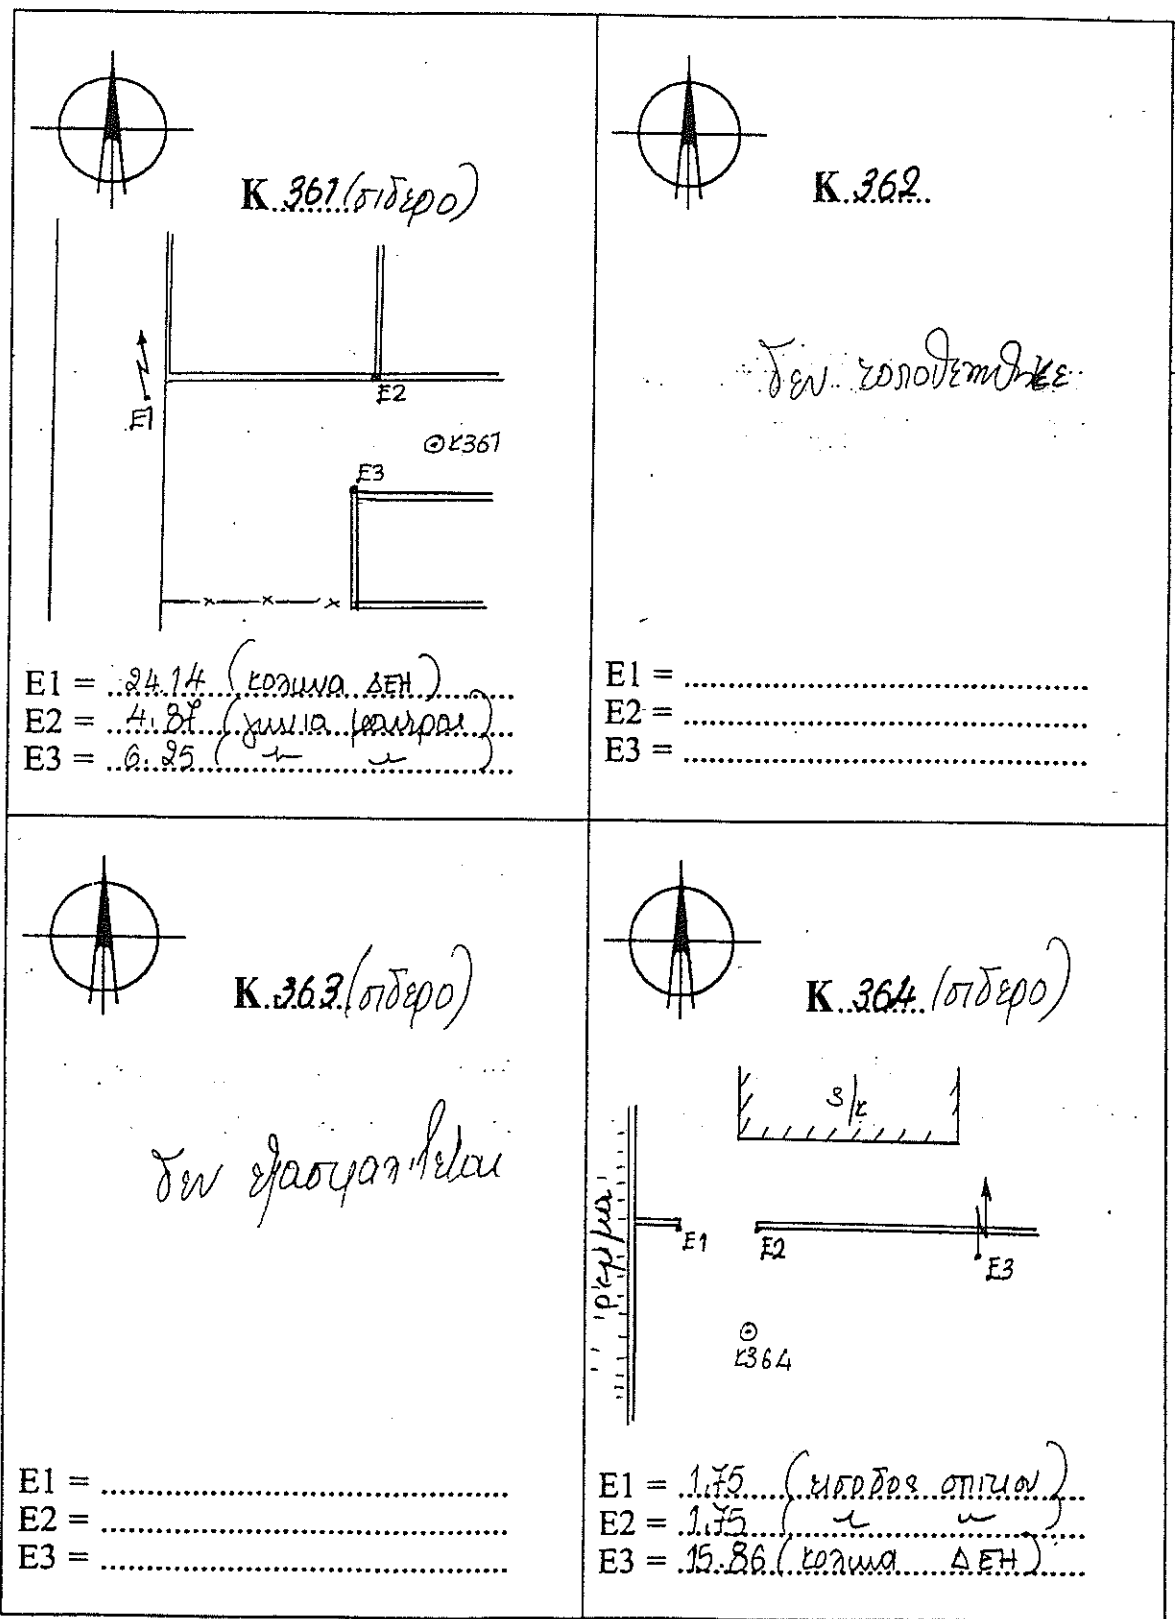 Κ 361 (σίδερο)
E1
E2
K361
E3
E1 = 24.14 (κολώνα ΔΕΗ)
E2 = 4.87 (γωνία μάντρας)
E3 = 6.25 ( " " )
Κ 362
δεν τοποθετήθηκε
E1 =
E2 =
E3 =
Κ 363 (σίδερο)
δεν εξασφαλίζεται
E1 =
E2 =
E3 =
Κ 364 (σίδερο)
ρέμμα
E1
E2
E3
K364
E1 = 1.75 (είσοδος σπιτιού)
E2 = 1.75 ( " " )
E3 = 15.86 (κολώνα ΔΕΗ)